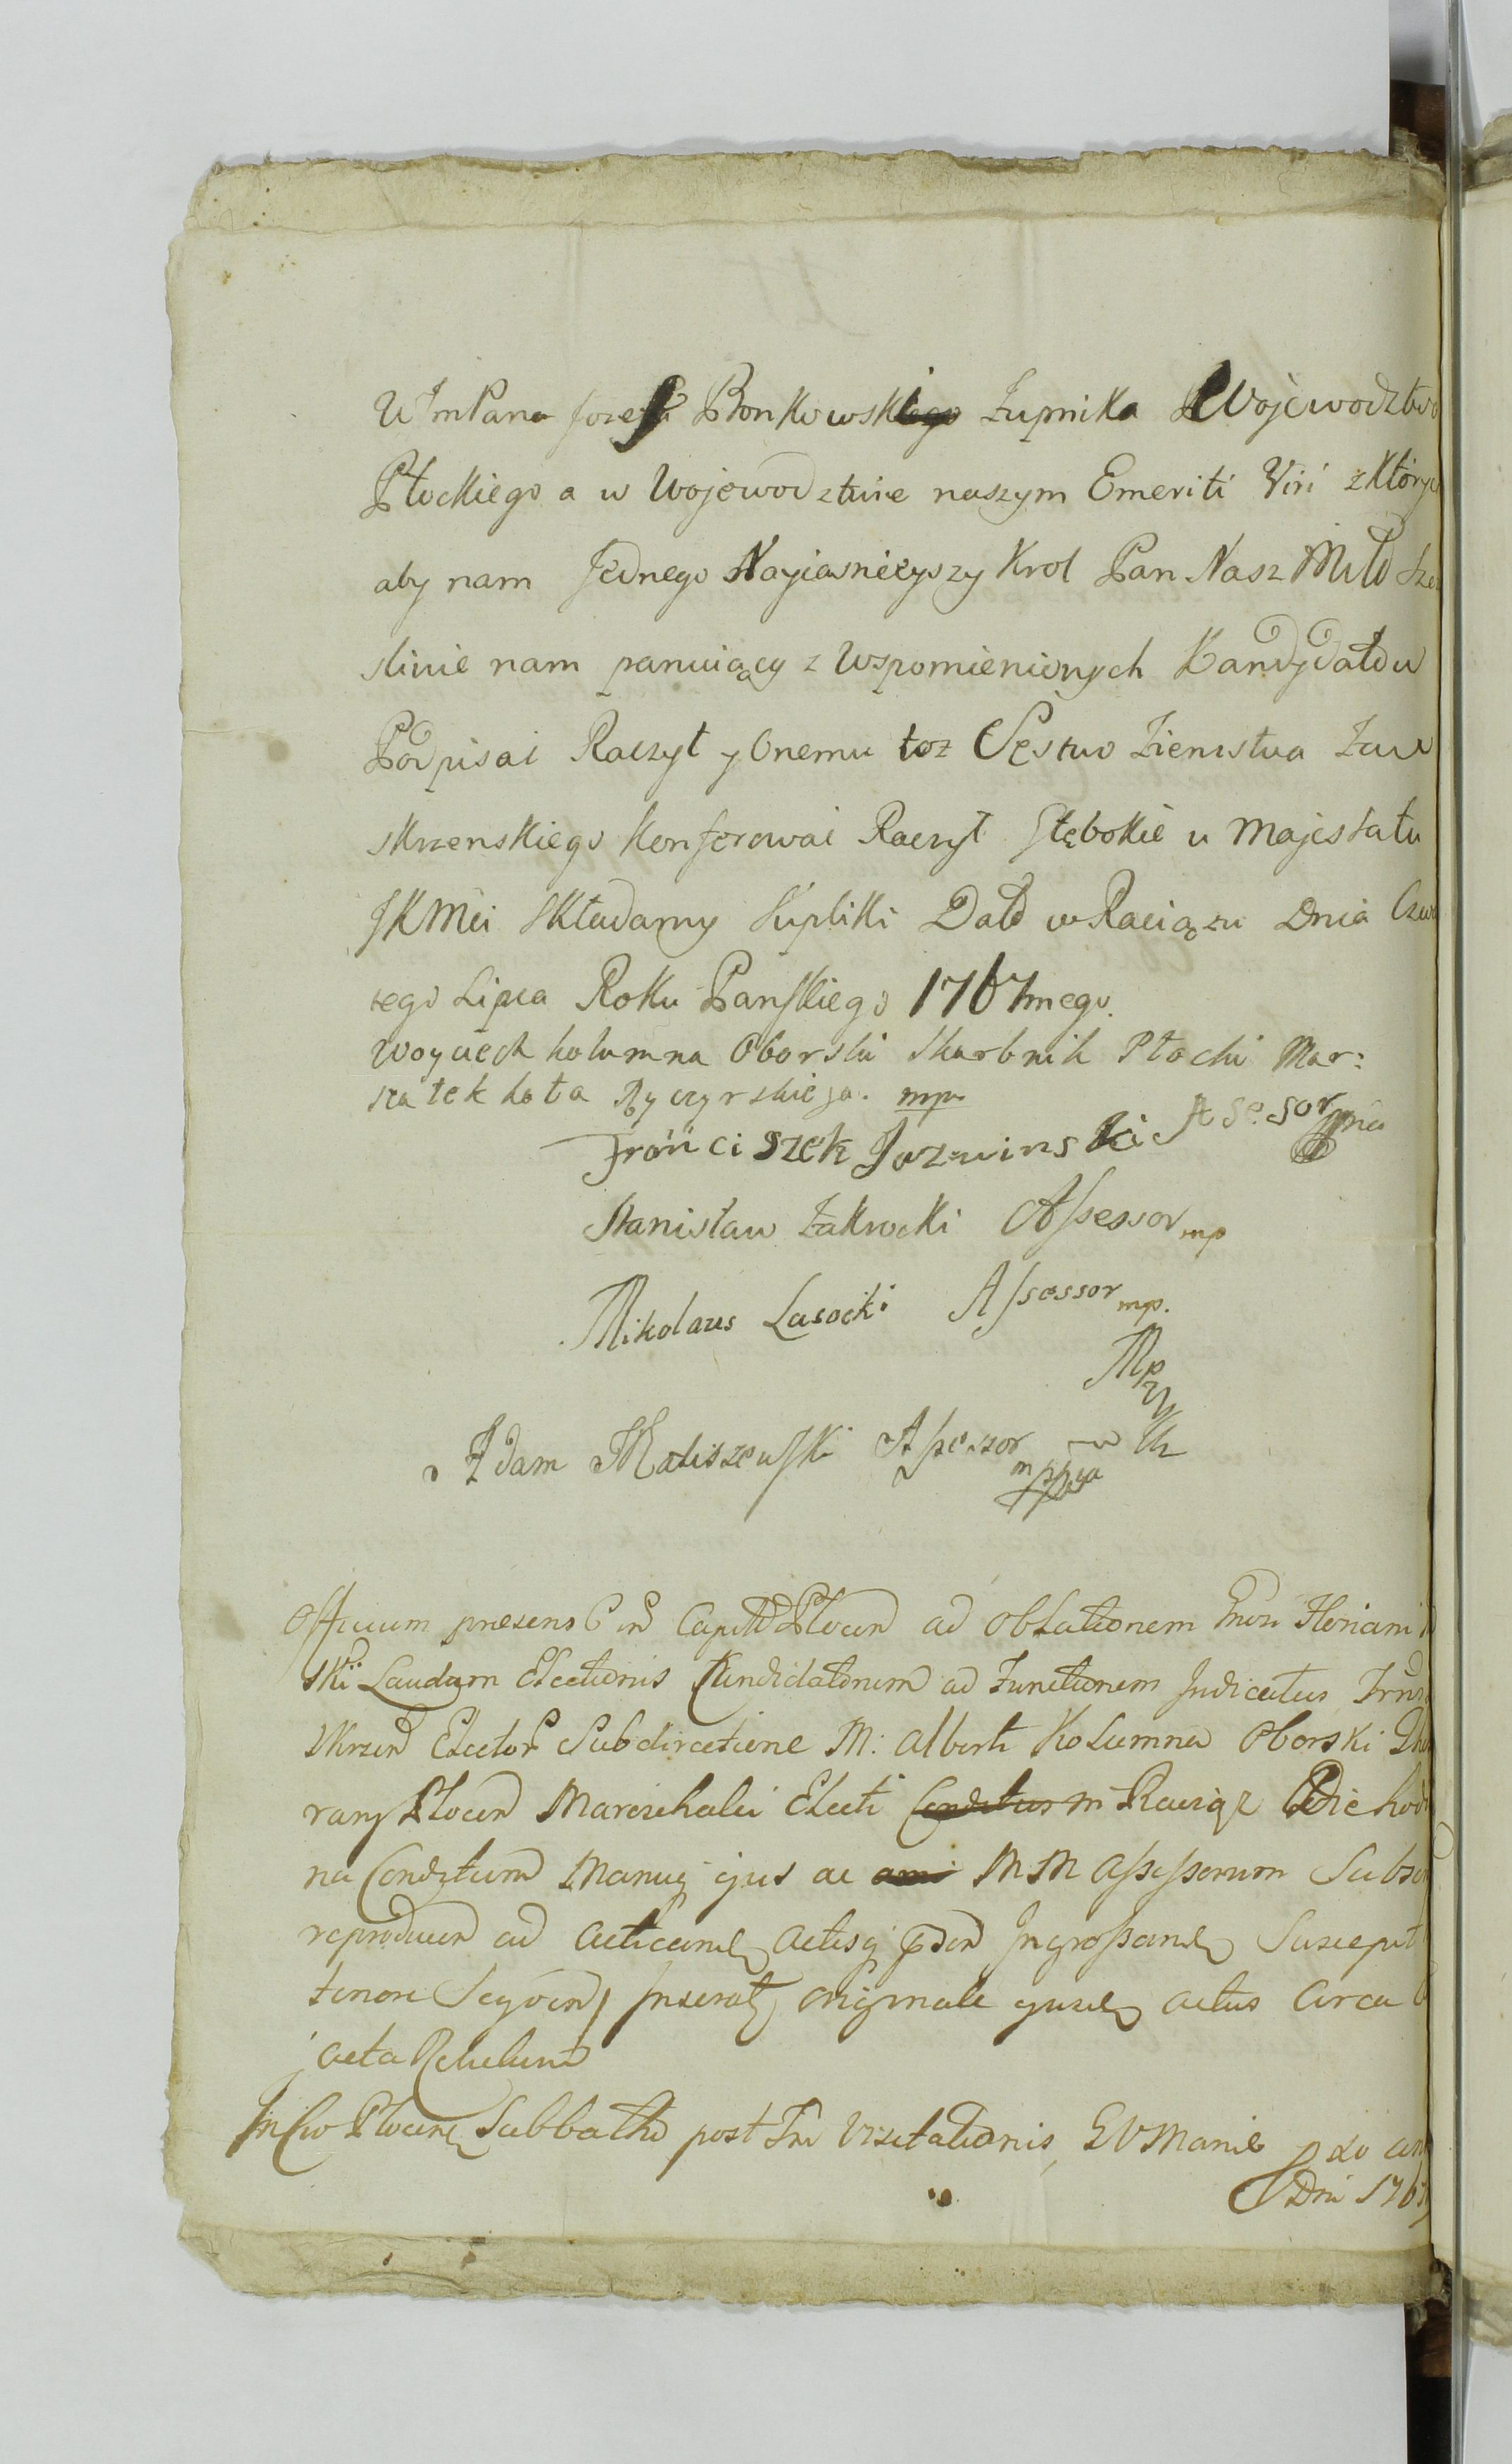 WImPana Jozefa Bonkowskiego Zupnika Wojewodztwa
Płockiego a w Wojewodztwie naszym Emeriti Viri z Który
aby nam Jednego Nayiasnieyszy Krol Pan Nasz Miło Szcz
sliwie nam panuiący z Wspomienionych Kandydatow
Podpisać Raczył y Onemu toz Sęstwo Ziemstwa Zaw
skrzenskiego Konferować Raczył Głębokie u Majestatu
JKMci Składamy Supliki Dato w Raciązu Dnia Czwar
tego Lipca Roku Panskiego 1767mego.
Woyciech kolumna Oborski Skarbnik Płocki Mar:
szałek koła Ryczyrskiego. mp
Fronciszek Jozwinski Asesor mp
Stanisław Zakrocki Assessor mp
Mikolaus Lasocki Assessor mp.
Adam Maliszewski Assessor
Officium præsens Capitle Plocen ad Oblationem Floriani
ski Laudum Electionis Kandidatorum ad Functionem Judicatus Trris
skrzen Elector Subdirectione M: Alberti Kolumna Oborski
rarij Plocen Marezchalci Electi Conditum in Raciąz Die hod
na Conditum Manuq ejus ac MM Assessorum Subscr
reproducen ad acticand Actisq Ingrossand Suscepit
tenore Inserat, originale actus circa
acta
In Plocen Sabbatho post Visitationis BVMariæ
Dni 1767